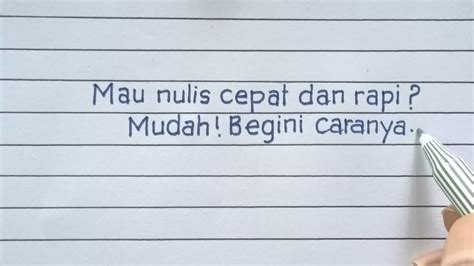 Mau nulis cepat dan rapi?
Mudah! Begini caranya.